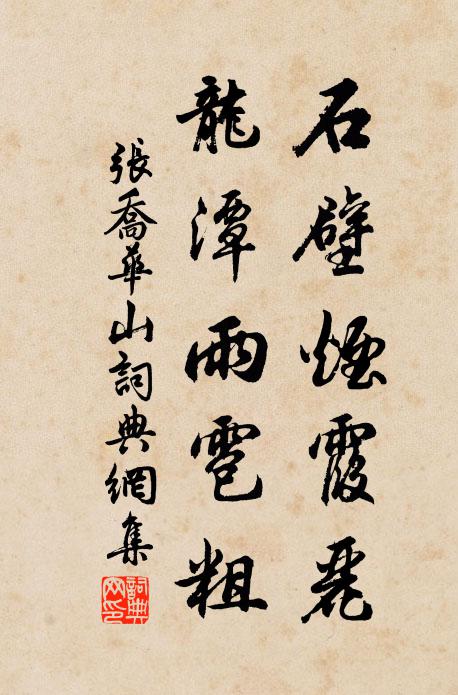 石壁煙霞麗
龍潭雨雹粗
張喬華山詞典網集
詞典網印